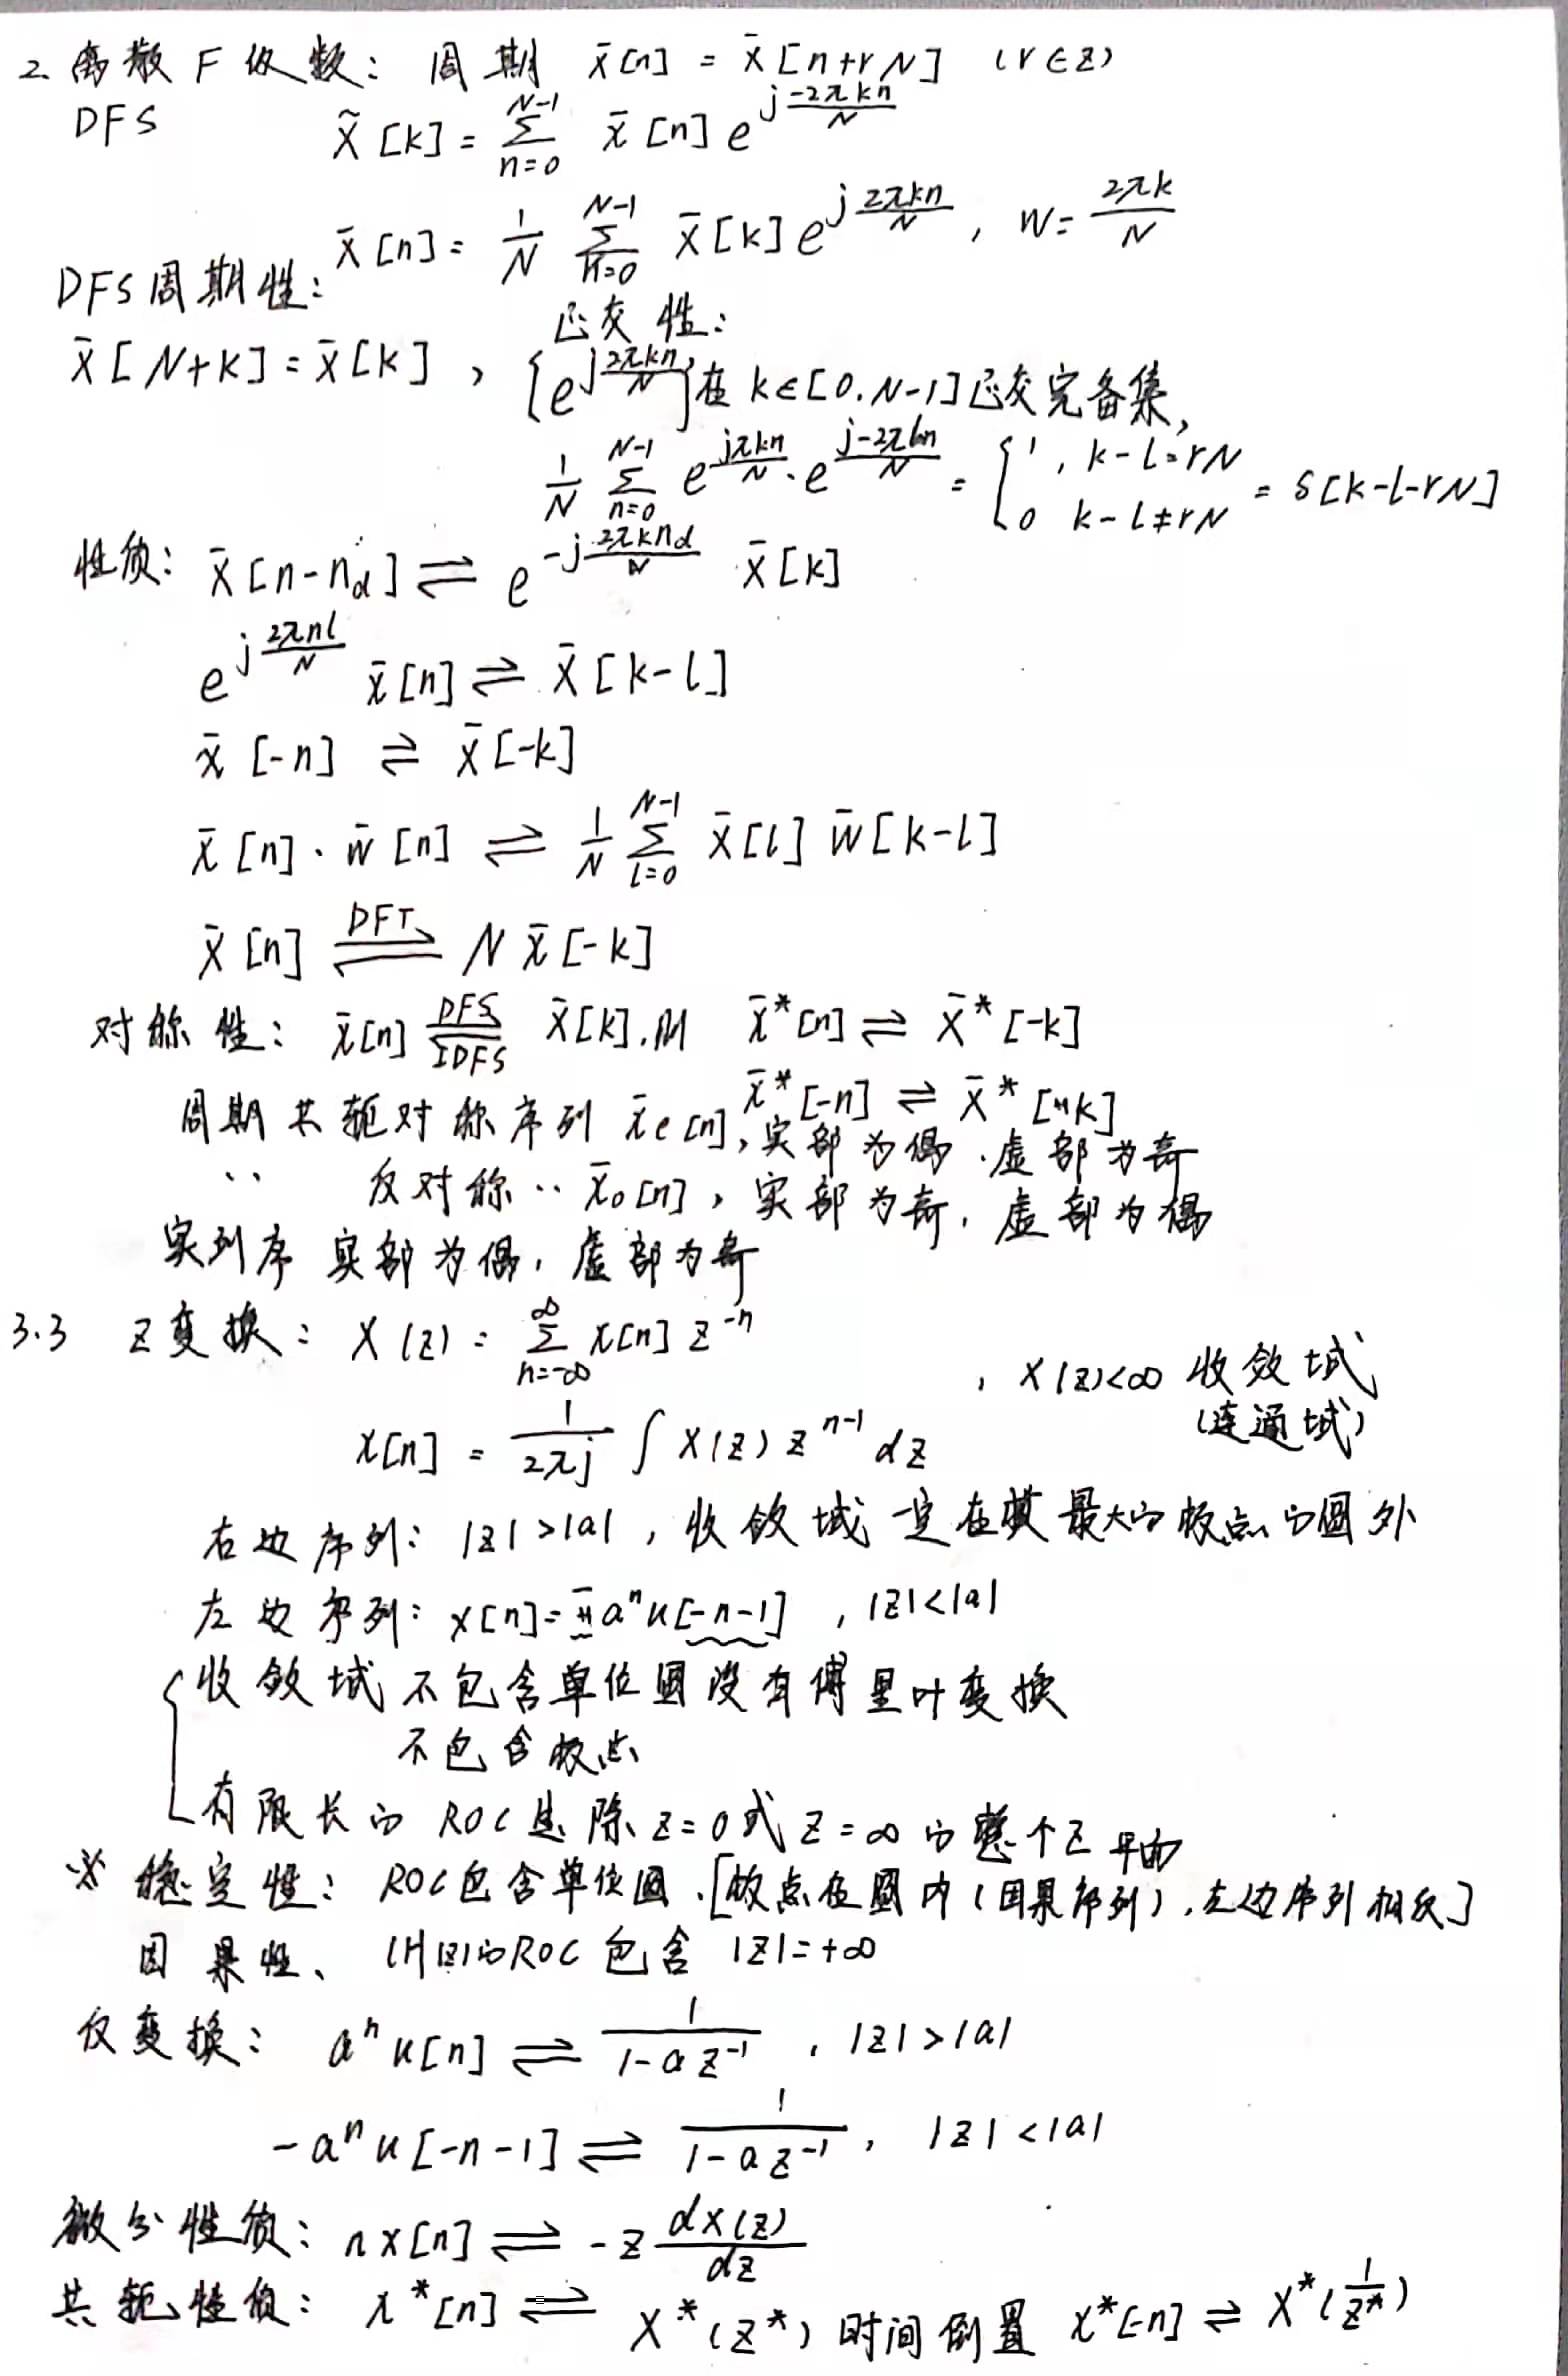 2. 离散F级数: 周期 x̄[n] = x̄[n+rN] (r∈z)
DFS X̃[k] = Σ_{n=0}^{N-1} x̄[n] e^{j\frac{-2πkn}{N}}
x̄[n] = \frac{1}{N} Σ_{n=0}^{N-1} X̄[k] e^{j\frac{2πkn}{N}}, W = \frac{2πk}{N}
DFS周期性:
X̄[N+k] = X̄[k],
正交性:
{e^{j\frac{2πkn}{N}}}在 k∈[0,N-1]正交完备集,
\frac{1}{N} Σ_{n=0}^{N-1} e^{\frac{jπkn}{N}} · e^{\frac{j-2πln}{N}} = { 1, k-l=rN ; 0 k-l≠rN = δ[k-l-rN]
性质: x̄[n-n_d] ⇌ e^{-j\frac{2πkn_d}{N}} X̄[k]
e^{j\frac{2πnl}{N}} x̄[n] ⇌ X̄[k-l]
x̄[-n] ⇌ X̄[-k]
x̄[n]·w̄[n] ⇌ \frac{1}{N} Σ_{l=0}^{N-1} X̄[l] W̄[k-l]
X̄[n] ⇌(DFT) N x̄[-k]
对称性: x̄[n] \frac{DFS}{IDFS} X̄[k],则 x̄*[n] ⇌ X̄*[-k]
x̄*[-n] ⇌ X̄*[k]
周期共轭对称序列 x̄e[n],实部为偶.虚部为奇
·· 反对称·· x̄o[n],实部为奇,虚部为偶
实列序 实部为偶,虚部为奇
3.3 Z变换: X(z) = Σ_{n=-∞}^{∞} x[n] z^{-n}
, X(z)<∞ 收敛域
(连通域)
x[n] = \frac{1}{2πj} ∫ X(z) z^{n-1} dz
右边序列: |z|>|a|, 收敛域一定在其最大的极点的圆外
左边序列: x[n] = -a^n u[-n-1], |z|<|a|
收敛域不包含单位圆没有傅里叶变换
不包含极点
有限长的 ROC是除z=0或z=∞的整个Z平面
※ 稳定性: ROC包含单位圆.[极点在圆内(因果序列),左边序列相反]
因果性、 (H(z)的ROC包含 |z|=+∞
反变换: a^n u[n] ⇌ \frac{1}{1-az^{-1}}, |z|>|a|
-a^n u[-n-1] ⇌ \frac{1}{1-az^{-1}}, |z|<|a|
微分性质: nx[n] ⇌ -z\frac{dX(z)}{dz}
共轭性质: x*[n] ⇌ X*(z*) 时间倒置 x*[-n] ⇌ X*(\frac{1}{z*})